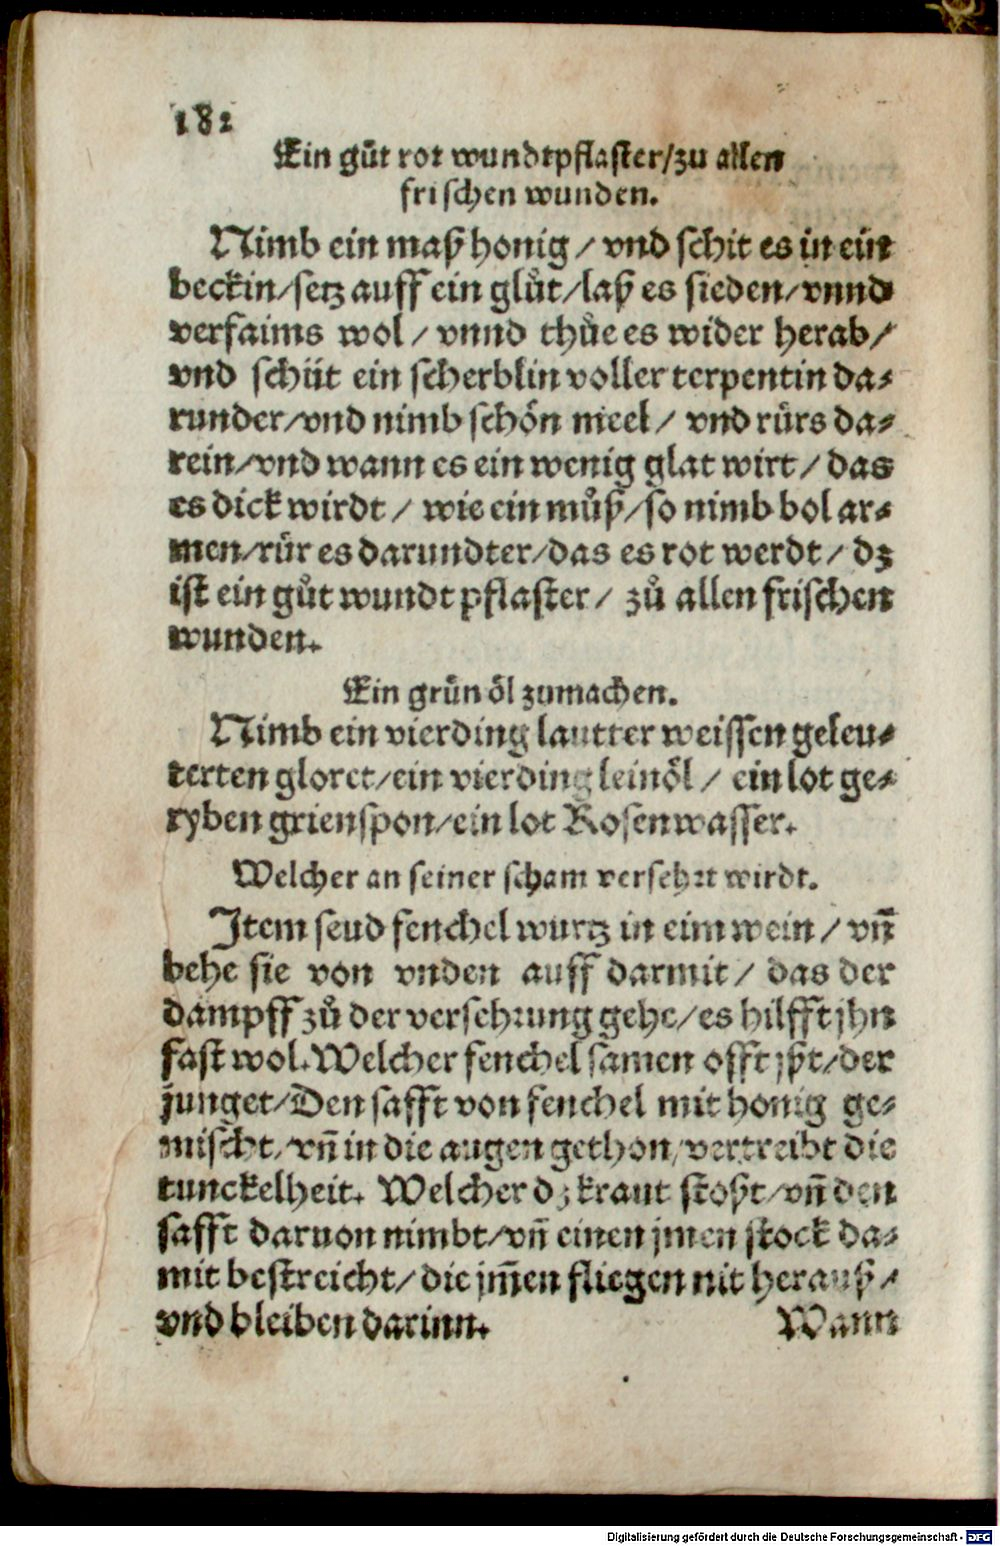 182
Ein gůt rot wundtpflaster/zu allen
frischen wunden.
Nimb ein maß honig / vnd schit es in ein
beckin/setz auff ein glůt/laß es sieden/vnnd
verfaims wol / vnnd thůe es wider herab/
vnd schüt ein scherblin voller terpentin da⸗
runder/vnd nimb schön meel / vnd rürs da⸗
rein/vnd wann es ein wenig glat wirt / das
es dick wirdt / wie ein můß/so nimb bol ar⸗
men/rür es darundter/das es rot werdt / dz
ist ein gůt wundt pflaster/ zů allen frischen
wunden.
Ein grün öl zumachen.
Nimb ein vierding lautter weissen geleu⸗
terten gloret/ein vierding leinöl / ein lot ge⸗
ryben grienspon/ein lot Rosenwasser.
Welcher an seiner scham versehrt wirdt.
Item seud fenchel wurtz in eim wein / vñ
behe sie von vnden auff darmit / das der
dampff zů der versehrung gehe/es hilfft jhn
fast wol. Welcher fenchel samen offt jßt/der
junget/Den safft von fenchel mit honig ge⸗
mischt/vñ in die augen gethon/vertreibt die
tunckelheit. Welcher dz kraut stoßt/vñ den
safft daruon nimbt/vñ einen jmen stock da⸗
mit bestreicht/die jm̃en fliegen nit herauß/
vnd bleiben darinn.
Wann
Digitalisierung gefördert durch die Deutsche Forschungsgemeinschaft - DFG